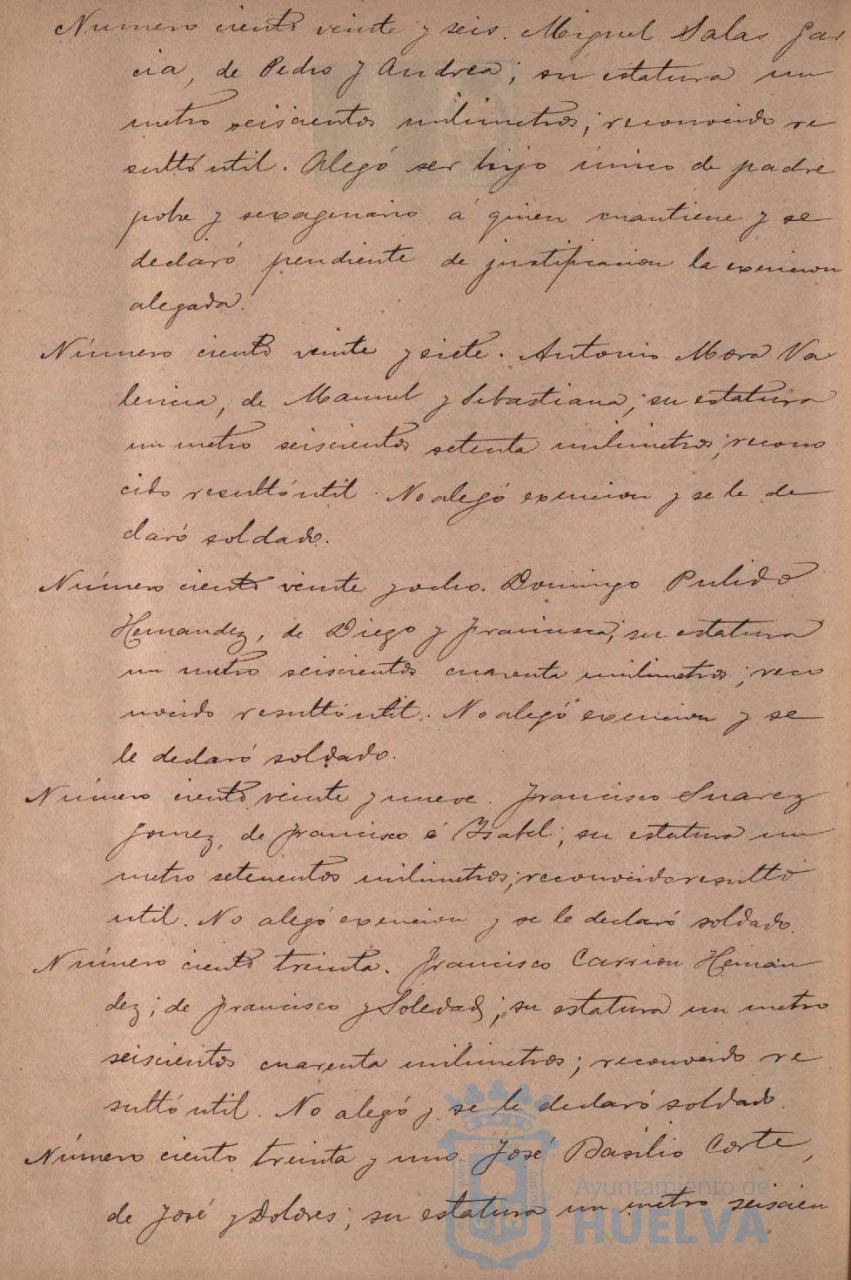 Numero ciento veinte y seis. Miguel Salas Gar
cia, de Pedro y Andrea; su estatura un
metro seiscientos milimetros; reconocido re
sultó util. Alegó ser hijo único de padre
pobre y sexagenario á quien mantiene y se
declaró pendiente de justificacion la exencion
alegada.
Número ciento veinte y siete. Antonio Mora Va
lencia, de Manuel y Sebastiana; su estatura
un metro seiscientos setenta milimetros; recono
cido resultó util. No alegó exencion y se le de
claró soldado.
Número ciento veinte y ocho. Domingo Pulido
Hernandez, de Diego y Francisca; su estatura
un metro seiscientos cuarenta milimetros; reco
nocido resultó util. No alegó exencion y se
le declaró soldado.
Número ciento veinte y nueve. Francisco Suarez
Gomez, de Francisco é Isabel; su estatura un
metro setecientos milimetros; reconocido resultó
util. No alegó exencion y se le declaró soldado.
Número ciento treinta. Francisco Carrion Hernan
dez; de Francisco y Soledad; su estatura un metro
seiscientos cuarenta milimetros; reconocido re
sultó util. No alegó y se le declaró soldado.
Número ciento treinta y uno José Basilio Corte,
de José y Dolores; su estatura un metro seiscien
Ayuntamiento de
HUELVA